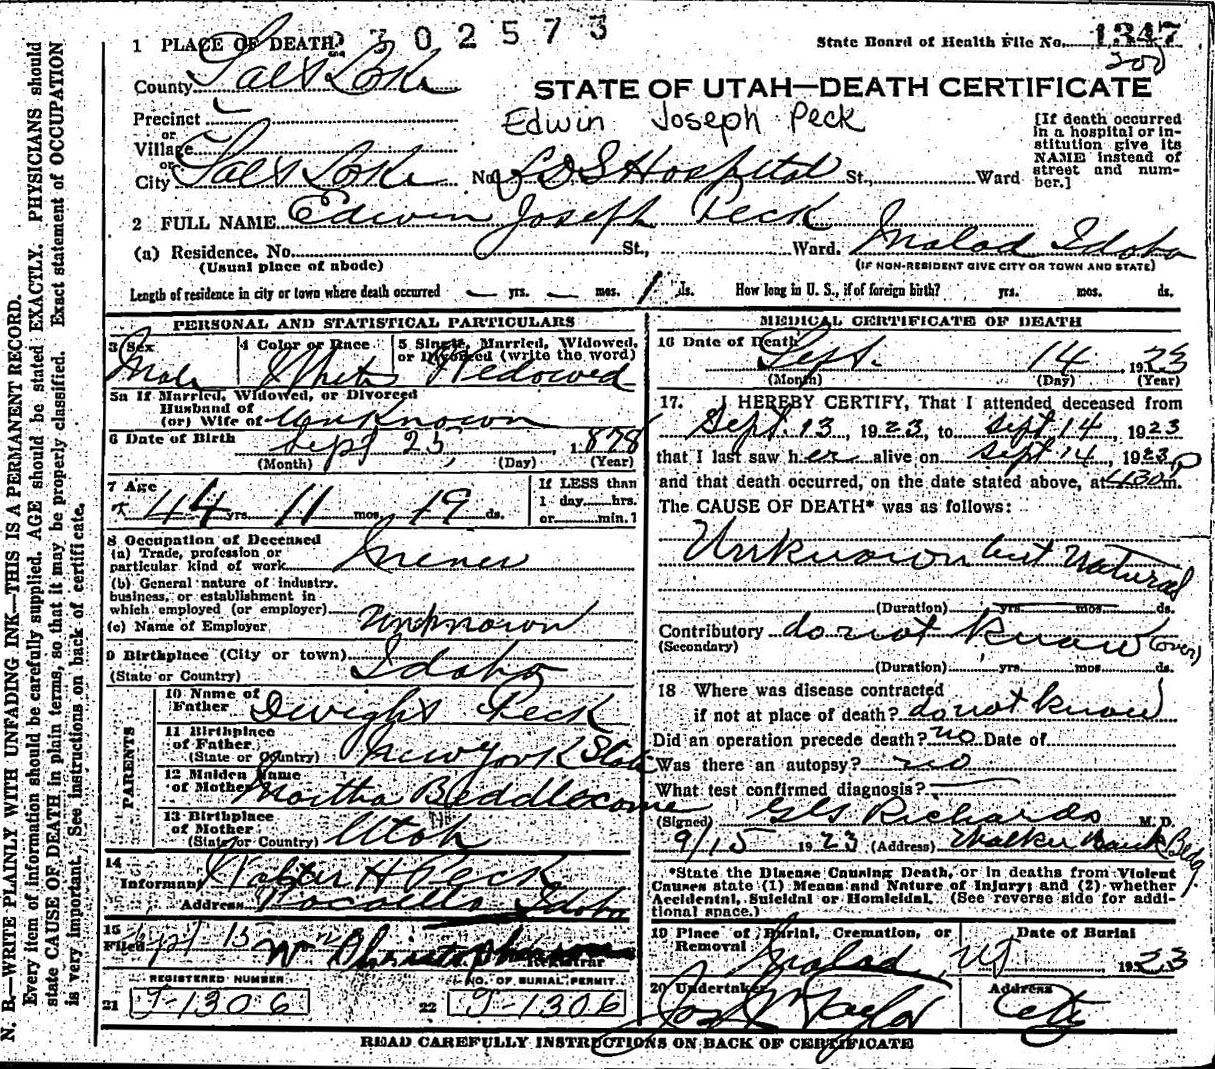 2302573
State Board of Health File No. 1347
1 PLACE OF DEATH
County Salt Lake
STATE OF UTAH—DEATH CERTIFICATE
Precinct
Edwin Joseph Peck
or
Village
or
City Salt Lake No. LDS Hospital St., Ward
[If death occurred
in a hospital or in-
stitution give its
NAME instead of
street and num-
ber.]
2 FULL NAME Edwin Joseph Peck
(a) Residence. No. St., Ward. Malad Idaho
(Usual place of abode)
(IF NON-RESIDENT GIVE CITY OR TOWN AND STATE)
Length of residence in city or town where death occurred — yrs. — mos. 1 ds. How long in U. S., if of foreign birth? yrs. mos. ds.
PERSONAL AND STATISTICAL PARTICULARS
3 Sex
Male
4 Color or Race
White
5 Single, Married, Widowed,
or Divorced (write the word)
Widowed
5a If Married, Widowed, or Divorced
Husband of
(or) Wife of Unknown
6 Date of Birth Sept 25, 1878
(Month) (Day) (Year)
7 Age
44 yrs. 11 mos. 19 ds.
If LESS than
1 day hrs.
or min.?
8 Occupation of Deceased
(a) Trade, profession or
particular kind of work Miner
(b) General nature of industry.
business, or establishment in
which employed (or employer)
(c) Name of Employer Unknown
9 Birthplace (City or town)
(State or Country) Idaho
PARENTS
10 Name of
Father Dwight Peck
11 Birthplace
of Father
(State or Country) New York State
12 Maiden Name
of Mother Martha Beddlecome
13 Birthplace
of Mother
(State or Country) Utah
14
Informant Walter H Peck
Address Pocatello Idaho
15
Filed Sept 15 Wm Christopherson
Registrar
REGISTERED NUMBER
NO. OF BURIAL PERMIT.
21 T-1306 22 T-1306
MEDICAL CERTIFICATE OF DEATH
16 Date of Death
Sept. 14 1923
(Month) (Day) (Year)
17. I HEREBY CERTIFY, That I attended deceased from
Sept. 13, 1923, to Sept 14, 1923
that I last saw her alive on Sept 14, 1923,
and that death occurred, on the date stated above, at 430 P m.
The CAUSE OF DEATH* was as follows:
Unknown but Natural
(Duration) yrs. mos. ds.
Contributory do not know (over)
(Secondary)
(Duration) yrs. mos. ds.
18 Where was disease contracted
if not at place of death? do not know
Did an operation precede death? no Date of
Was there an autopsy? no
What test confirmed diagnosis? —
(Signed) GS Richards M. D.
9/15 1923 (Address) Walker Bank Bldg
*State the Disease Causing Death, or in deaths from Violent
Causes state (1) Means and Nature of Injury; and (2) whether
Accidental, Suicidal or Homicidal. (See reverse side for addi-
tional space.)
19 Place of Burial, Cremation, or
Removal
Malad, UT
Date of Burial
1923
20 Undertaker
Jos Wm Taylor
Address
City
READ CAREFULLY INSTRUCTIONS ON BACK OF CERTIFICATE
N. B.—WRITE PLAINLY WITH UNFADING INK—THIS IS A PERMANENT RECORD.
Every item of information should be carefully supplied. AGE should be stated EXACTLY. PHYSICIANS should
state CAUSE OF DEATH in plain terms, so that it may be properly classified. Exact statement of OCCUPATION
is very important. See instructions on back of certificate.